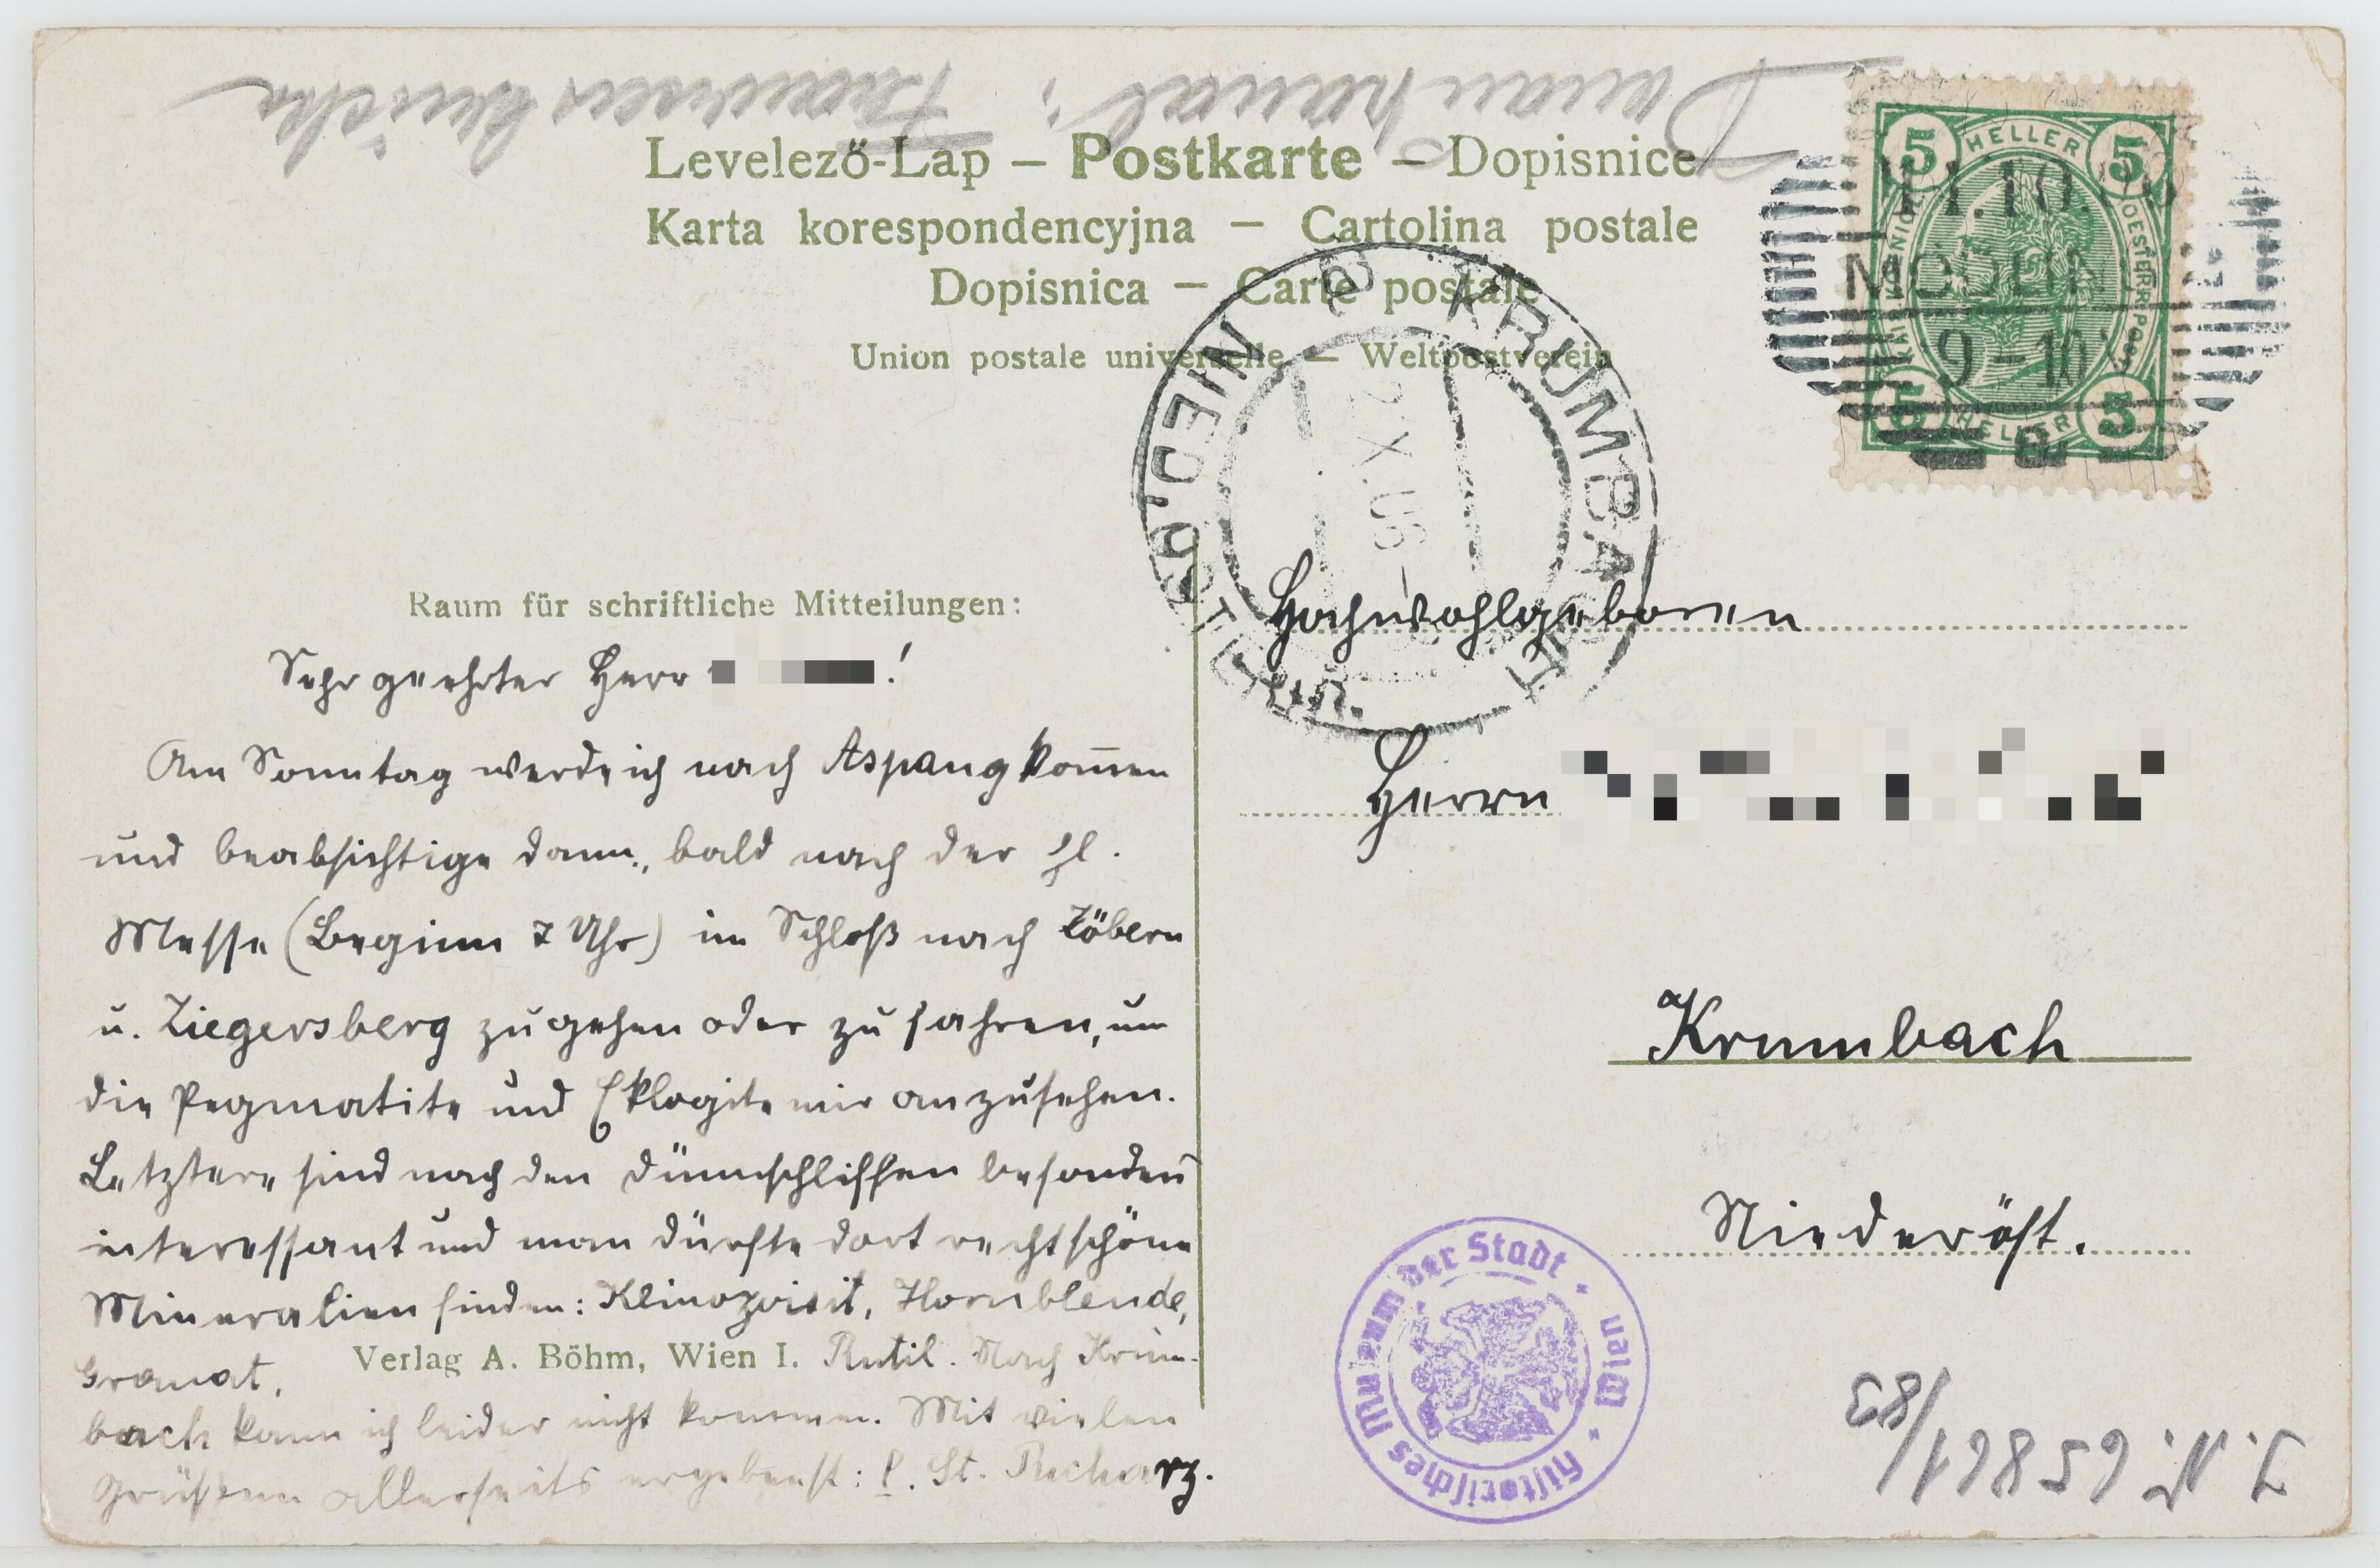 Donaukanal: Franzensbrücke
Levelező-Lap – Postkarte – Dopisnice
Karta korespondencyjna – Cartolina postale
Dopisnica – Carte postale
Union postale universelle – Weltpostverein
5 HELLER 5
KAIS. KÖNIGL. OESTERR. POST
5 HELLER 5
11.10.
MÖDLI
9–10
KRUMBACH
NIED.ÖSTERR.
X.06
Raum für schriftliche Mitteilungen:
Sehr geehrter Herr !
Am Sonntag werde ich nach Aspang kom̄en
und beabsichtige dann, bald nach der hl.
Messe (Beginn 7 Uhr) im Schloß nach Zöbern
u. Ziegersberg zu gehen oder zu fahren, um
die Pegmatite und Eklogite mir anzusehen.
Letztere sind nach den Dünnschliffen besonders
interessant und man dürfte dort recht schöne
Mineralien finden: Klinozoisit, Hornblende,
Granat, Rutil. Nach Krum-
Verlag A. Böhm, Wien I.
bach kann ich leider nicht kommen. Mit vielen
Grüßen allerseits ergebenst: P. St. Richarz.
Hochwohlgeboren
Herrn
Krumbach
Niederöst.
Historisches Museum der Stadt Wien
J. N. 65861/83